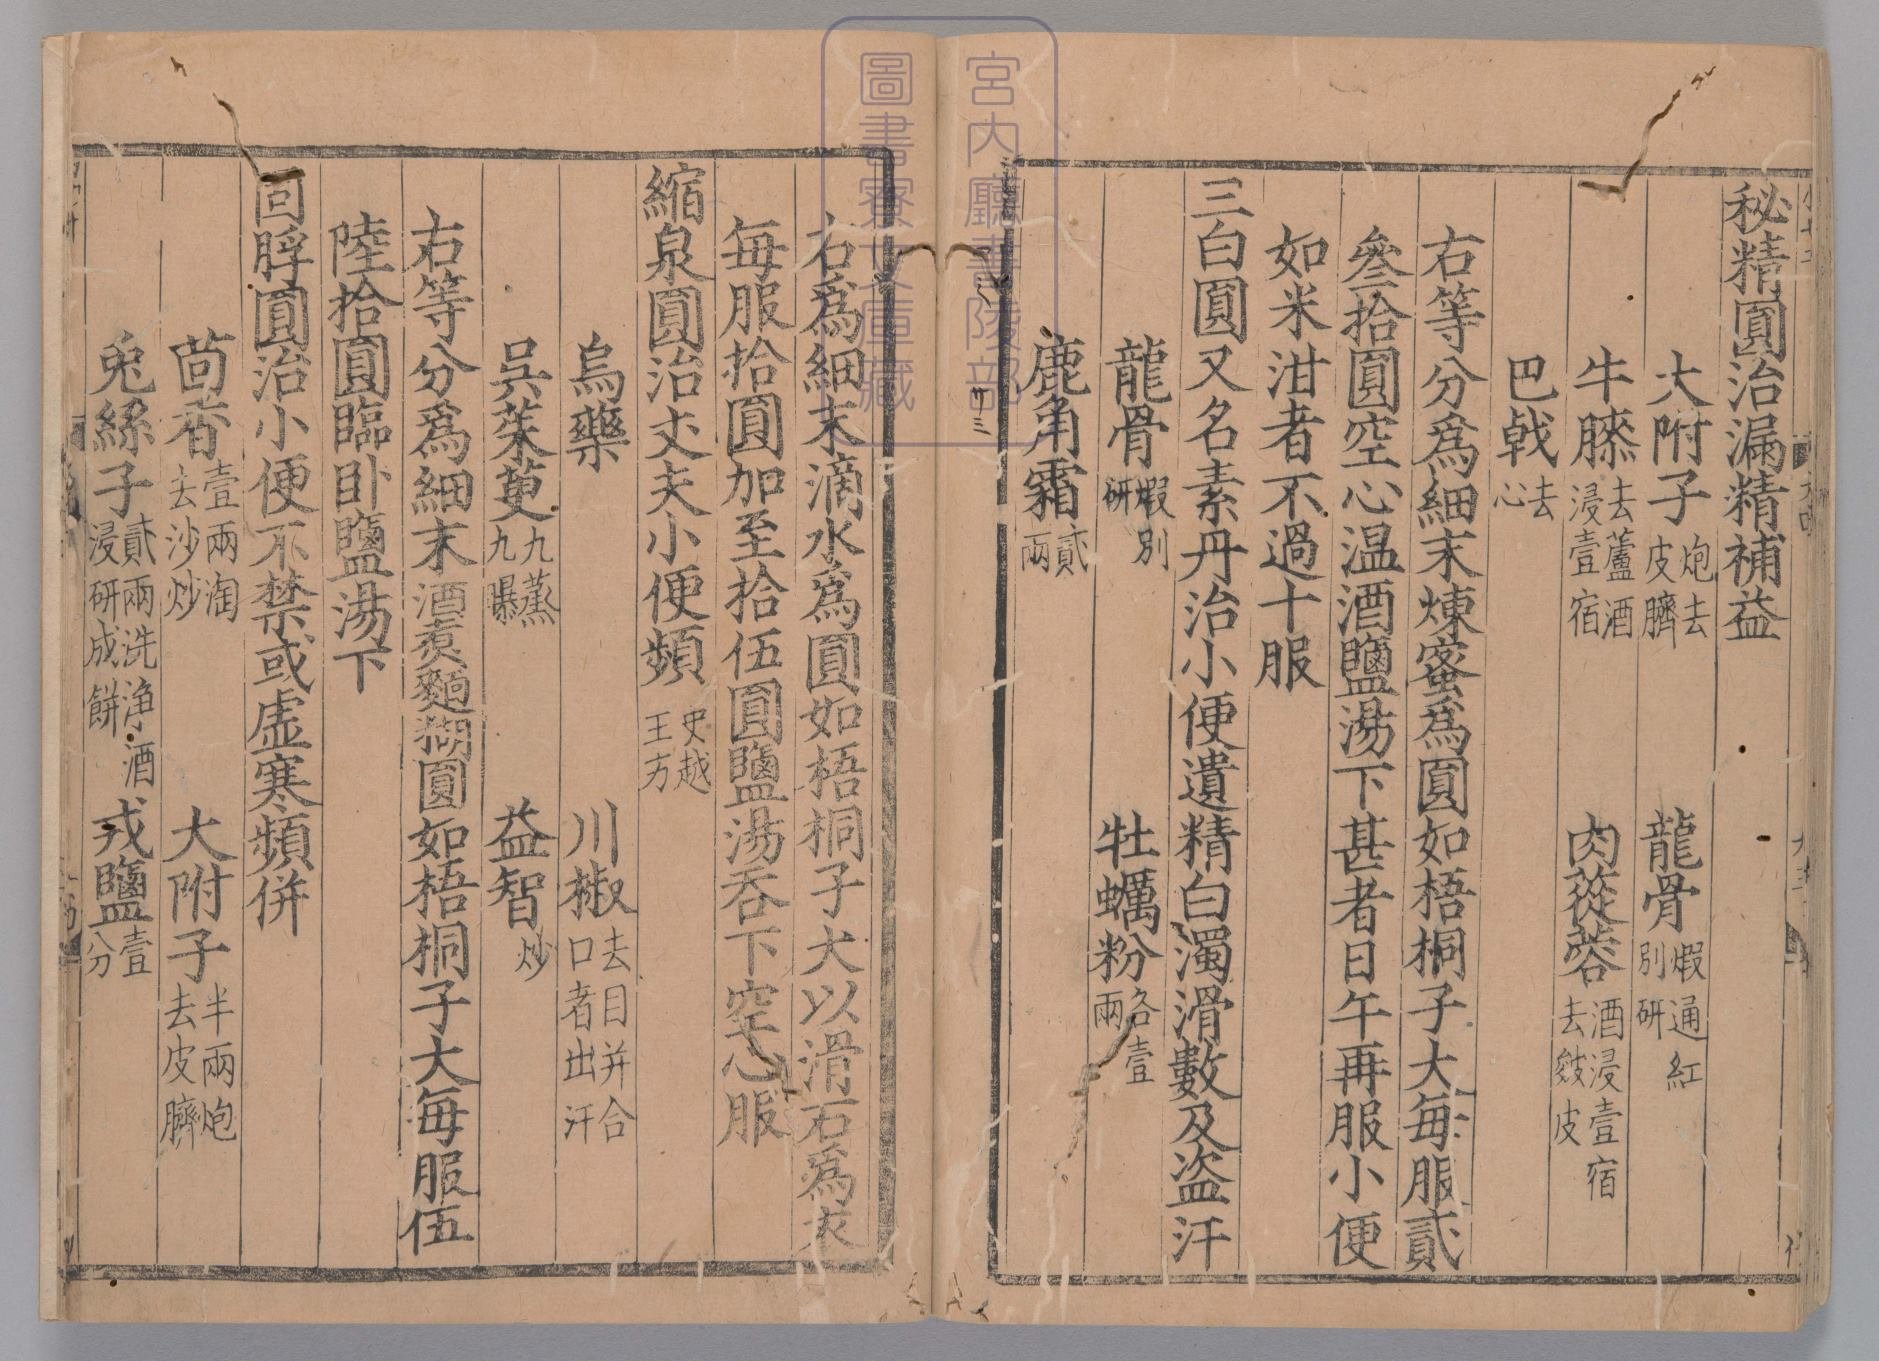 秘精圓治漏精補益
大附子炮去皮臍 龍骨煆通紅別研
牛膝去蘆酒浸壹宿 肉蓯蓉酒浸壹宿去皴皮
巴戟去心
右等分爲細末煉蜜爲圓如梧桐子大每服貳
叄拾圓空心温酒鹽湯下甚者日午再服小便
如米泔者不過十服
三白圓又名素丹治小便遺精白濁滑數及盜汗
龍骨煆別研 牡蠣粉各壹兩
鹿角霜貳兩
右爲細末滴水爲圓如梧桐子大以滑石爲衣
每服拾圓加至拾伍圓鹽湯吞下空心服
縮泉圓治丈夫小便頻史越王方
烏藥 川椒去目并合口者出汗
吳茱萸九蒸九曝 益智炒
右等分爲細末酒煑麪糊圓如梧桐子大每服伍
陸拾圓臨卧鹽湯下
回脬圓治小便不禁或虛寒頻併
茴香壹兩淘去沙炒 大附子半兩炮去皮臍
兔絲子貳兩洗浄酒浸研成餅 戎鹽壹分
宮内廳書陵部
圖書寮文庫藏